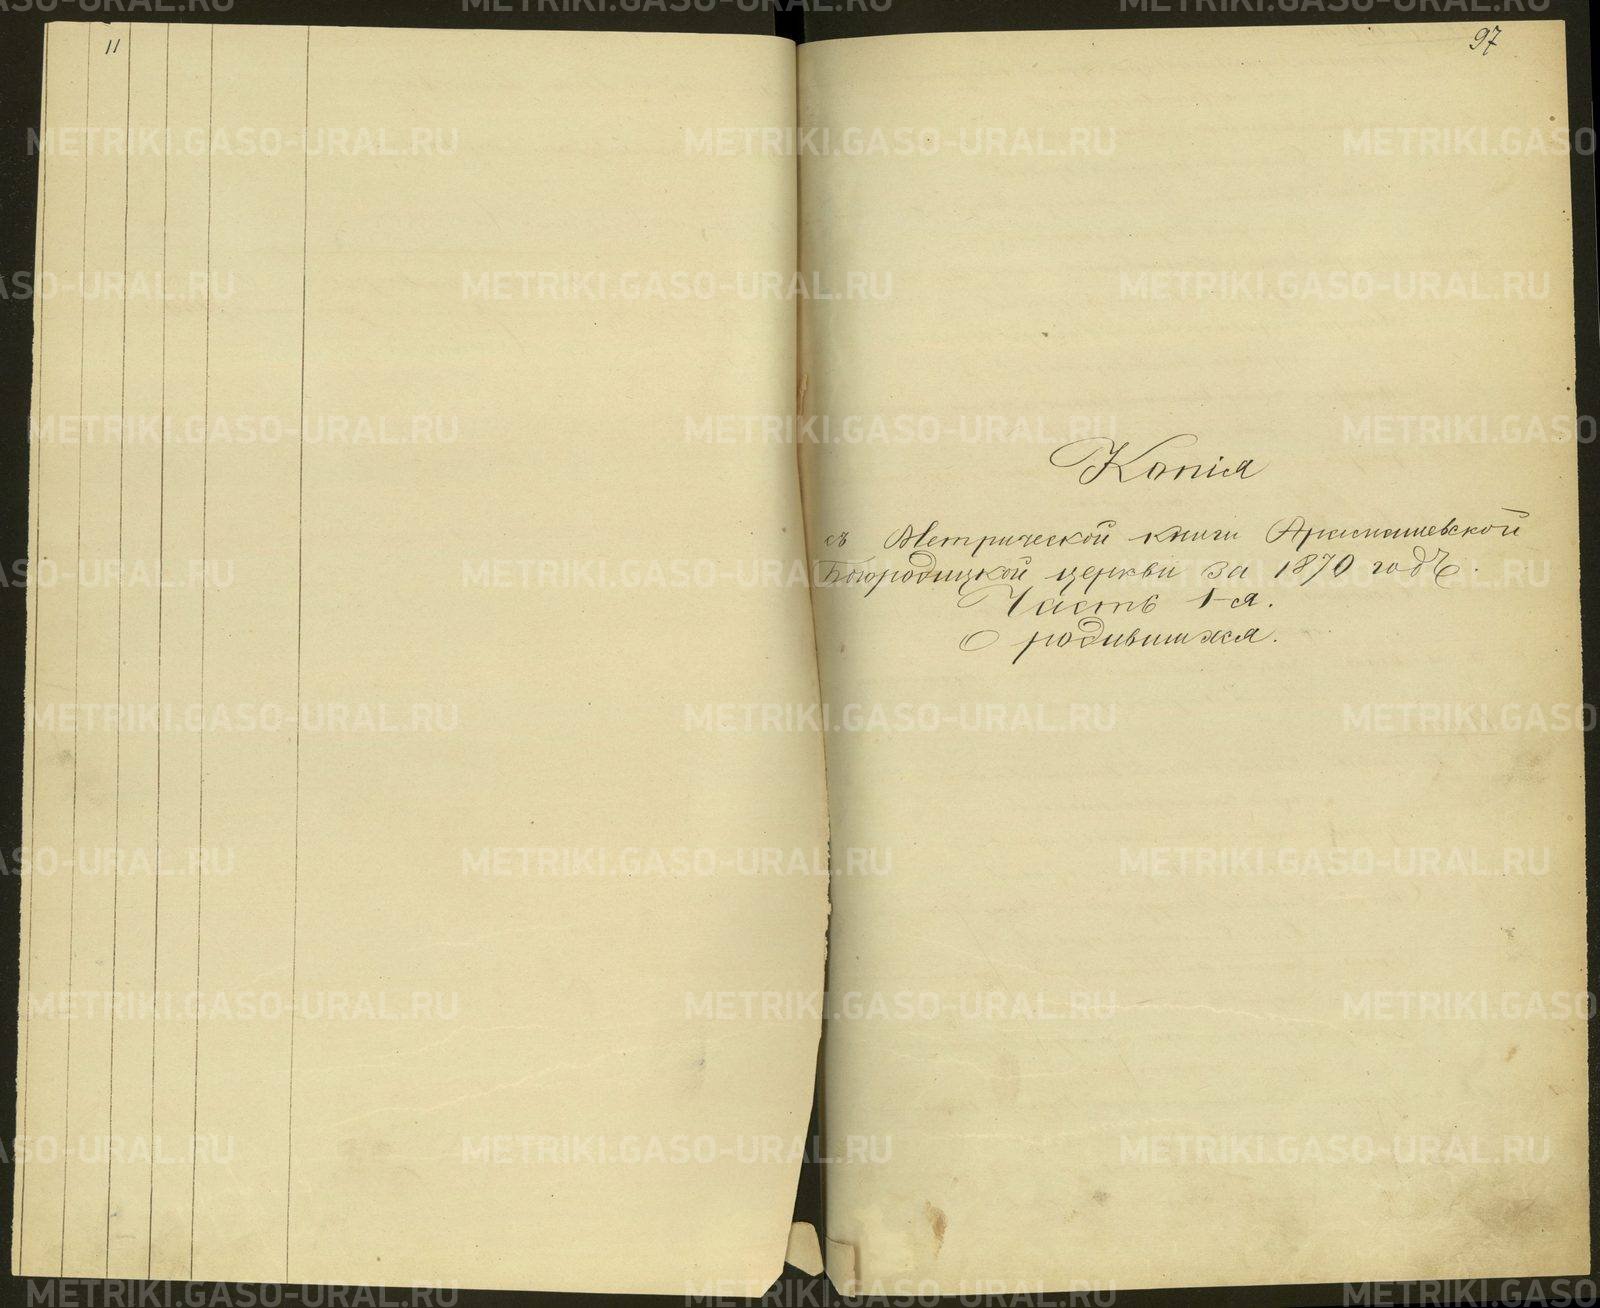 11
97
Копія
съ Метрической книги Арамашевской
Богородицкой церкви за 1870 годъ.
Часть 1-я.
О родившихся.
METRIKI.GASO-URAL.RU